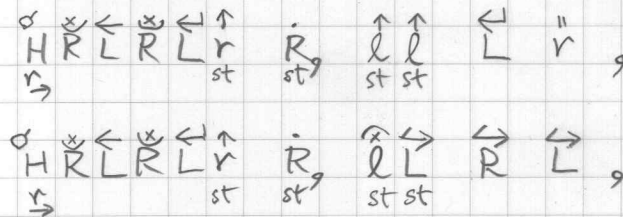 H R L R L r R, l l L r̈ ,
r st st st st
H R L R L r R, l L R L ,
r st st st st